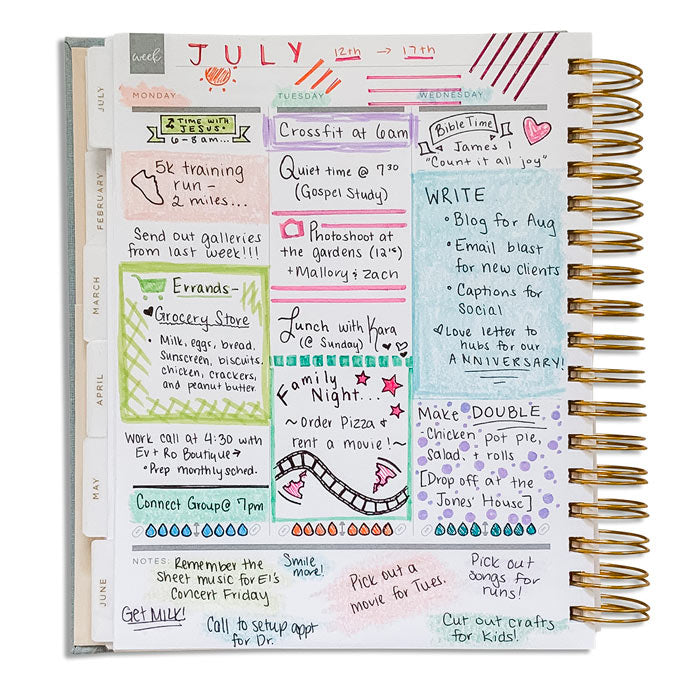 week
JULY 12th → 17th
MONDAY
TIME WITH
JESUS
6-8am...
5k training
run -
2 miles...
Send out galleries
from last week!!!
Errands-
Grocery Store
• Milk, eggs, bread,
Sunscreen, biscuits,
chicken, crackers,
and peanut butter.
Work call at 4:30 with
Ev + Ro Boutique →
• Prep monthly sched.
Connect Group @ 7pm
TUESDAY
Crossfit at 6am
Quiet time @ 7:30
(Gospel Study)
Photoshoot at
the gardens (12's)
+ Mallory & Zach
Lunch with Kara
(@ Sunday)
Family
Night...
~ Order Pizza &
rent a movie! ~
WEDNESDAY
Bible Time
James 1
"Count it all joy"
WRITE
• Blog for Aug
• Email blast
for new clients
• Captions for
Social
Love letter to
hubs for our
ANNIVERSARY!
Make DOUBLE
-Chicken pot pie,
Salad, + rolls
[Drop off at the
Jones' House]
NOTES:
Remember the
Sheet music for El's
Concert Friday
Smile
more!
Pick out a
movie for Tues.
Pick out
songs for
runs!
Get MILK!
Call to setup appt
for Dr.
Cut out crafts
for Kids!
JULY
FEBRUARY
MARCH
APRIL
MAY
JUNE